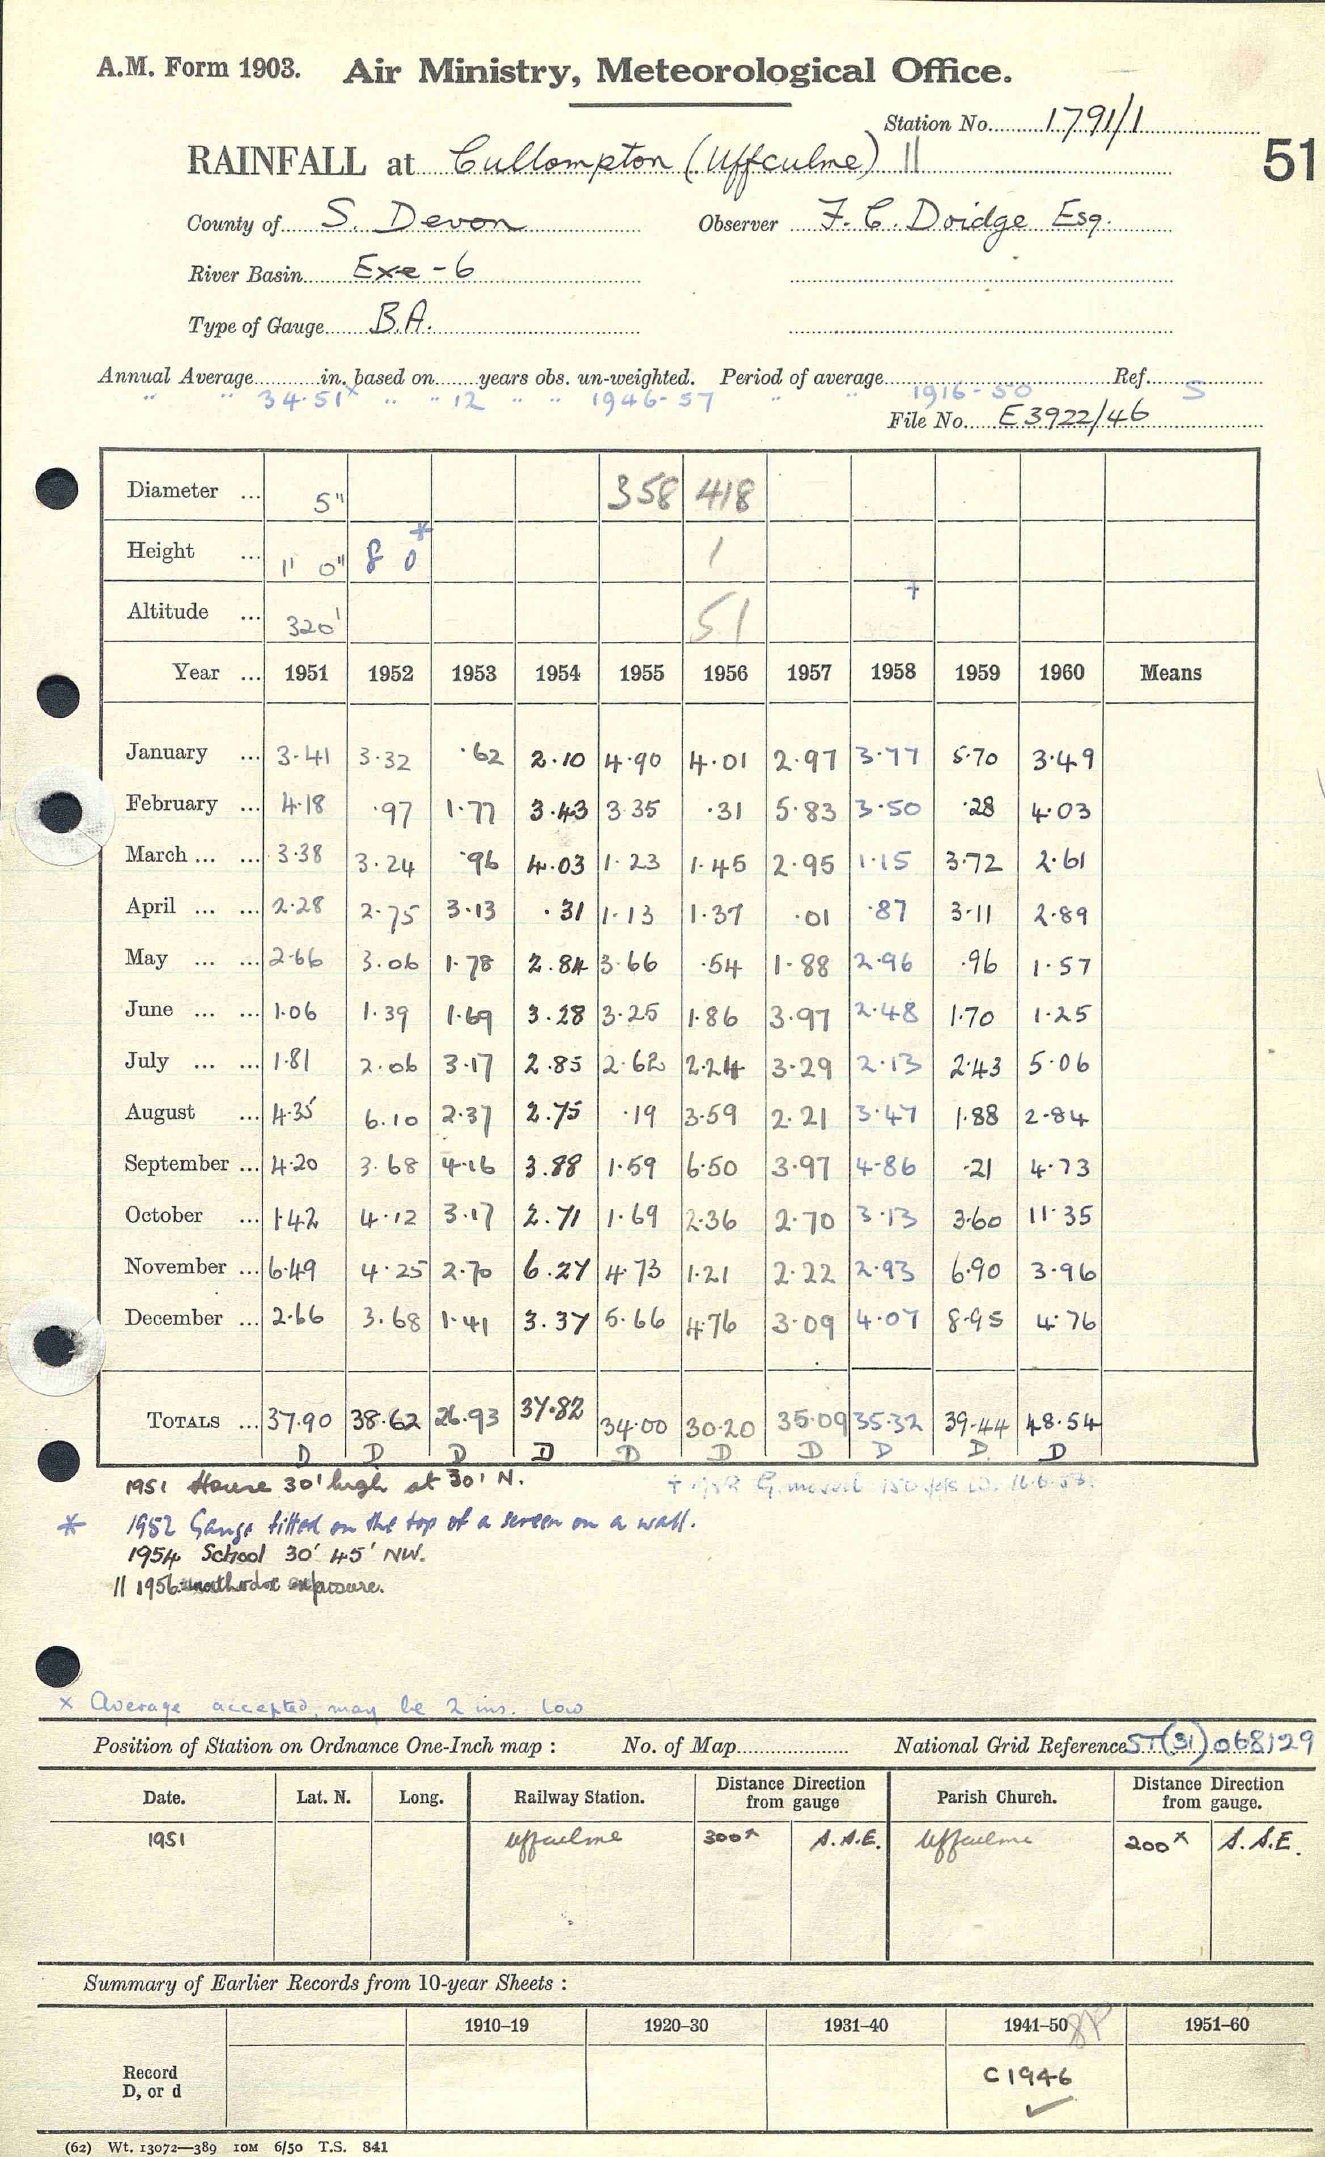 A.M. Form 1903. Air Ministry, Meteorological Office.
Station No. 1791/1
RAINFALL at Cullompton (Uffculme) || 51
County of S. Devon Observer F. C. Doidge Esq.
River Basin Exe - 6
Type of Gauge B.A.
Annual Average in. based on years obs. un-weighted. Period of average Ref.
" " 34.51 x " " 12 " " 1946-57 " " 1916-50 S
File No. E3922/46
Diameter ... 5" 358 418
Height ... 1' 0" 8 0 * 1
Altitude ... 320' 51 †
Year ... 1951 1952 1953 1954 1955 1956 1957 1958 1959 1960 Means
January ... 3.41 3.32 .62 2.10 4.90 4.01 2.97 3.77 5.70 3.49
February ... 4.18 .97 1.77 3.43 3.35 .31 5.83 3.50 .28 4.03
March ... ... 3.38 3.24 .96 4.03 1.23 1.45 2.95 1.15 3.72 2.61
April ... ... 2.28 2.75 3.13 .31 1.13 1.37 .01 .87 3.11 2.89
May ... ... 2.66 3.06 1.78 2.84 3.66 .54 1.88 2.96 .96 1.57
June ... ... 1.06 1.39 1.69 3.28 3.25 1.86 3.97 2.48 1.70 1.25
July ... ... 1.81 2.06 3.17 2.85 2.62 2.24 3.29 2.13 2.43 5.06
August ... 4.35 6.10 2.37 2.75 .19 3.59 2.21 3.47 1.88 2.84
September ... 4.20 3.68 4.16 3.88 1.59 6.50 3.97 4.86 .21 4.73
October ... 1.42 4.12 3.17 2.71 1.69 2.36 2.70 3.13 3.60 11.35
November ... 6.49 4.25 2.70 6.27 4.73 1.21 2.22 2.93 6.90 3.96
December ... 2.66 3.68 1.41 3.37 5.66 4.76 3.09 4.07 8.95 4.76
TOTALS ... 37.90 38.62 26.93 37.82 34.00 30.20 35.09 35.32 39.44 48.54
D D D D D D D D D D
1951 House 30' high at 30' N. † 1958 G. moved 150 yds W.
* 1952 Gauge fitted on the top of a screen on a wall.
1954 School 30' 45' NW.
|| 1956 unorthodox exposure.
x Average accepted, may be 2 ins. low
Position of Station on Ordnance One-Inch map : No. of Map National Grid Reference ST(31)068129
Date. Lat. N. Long. Railway Station. Distance Direction from gauge Parish Church. Distance Direction from gauge.
1951 Uffculme 300x S.S.E. Uffculme 200x S.S.E.
Summary of Earlier Records from 10-year Sheets :
1910–19 1920–30 1931–40 1941–50 1951–60
Record
D, or d C1946
(62) Wt. 13072—389 10M 6/50 T.S. 841